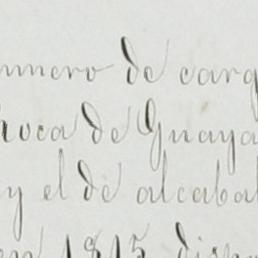 numero de carg
hoca de Guaya
y el de alcabal
en 1815 disp